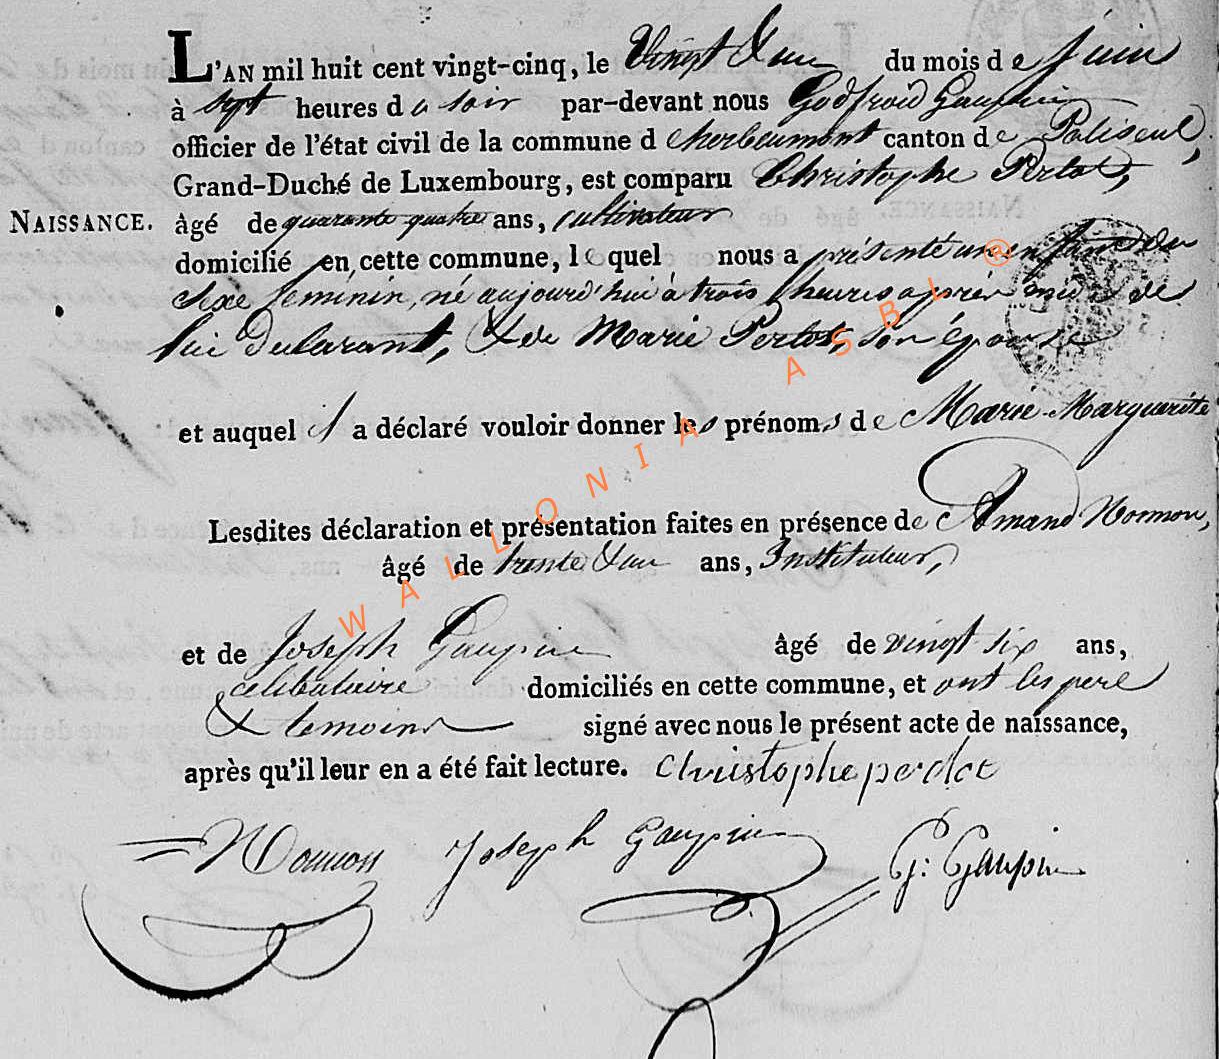 L'AN mil huit cent vingt-cinq, le Vingt & un du mois de juin
à sept heures du soir par-devant nous Godfroid Gaupin
officier de l'état civil de la commune d'herbeumont canton de Paliseul,
Grand-Duché de Luxembourg, est comparu Christophe Pertot,
NAISSANCE.
âgé de quarante quatre ans, cultivateur
domicilié en cette commune, lequel nous a présenté un enfant du
sexe féminin, né aujourd'hui à trois heures après midi de
lui déclarant, & de Marie Pertot, son épouse
et auquel il a déclaré vouloir donner les prénoms de Marie-Marguerite
Lesdites déclaration et présentation faites en présence de Amand Nonnon,
âgé de trente & un ans, Instituteur,
et de Joseph Gaupin âgé de vingt six ans,
célibataire domiciliés en cette commune, et ont les pere
& temoins signé avec nous le présent acte de naissance,
après qu'il leur en a été fait lecture. Christophe perdot
Nonnon Joseph Gaupin G: Gaupin
WALLONIA ASBL ®